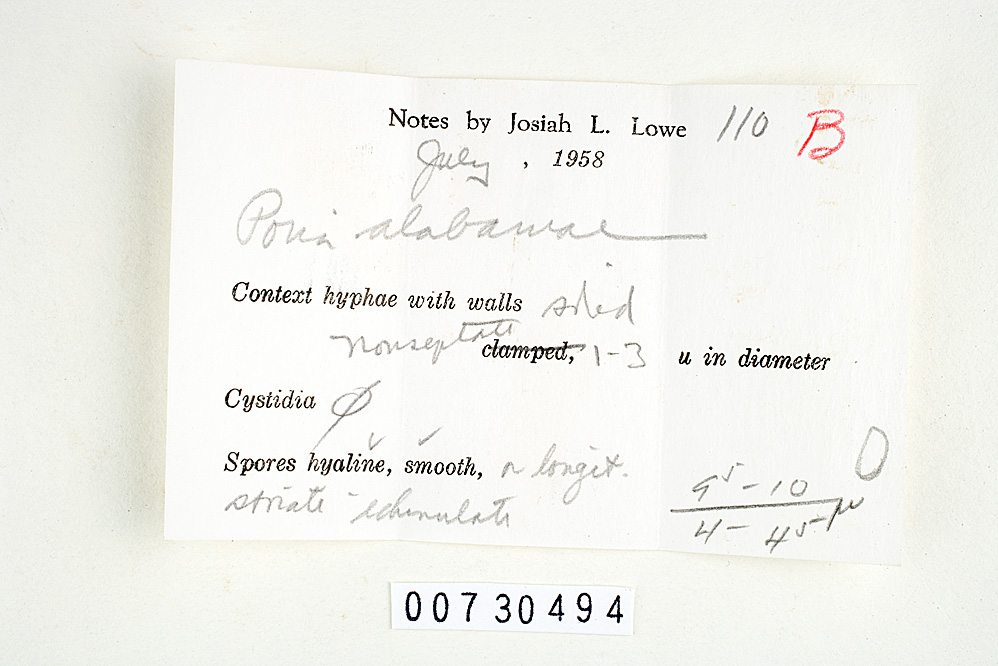 Notes by Josiah L. Lowe 110 B
July , 1958
Poria alabamae
Context hyphae with walls solid
nonseptate clamped, 1-3 u in diameter
Cystidia Ø
Spores hyaline, smooth, or longit.
striate-echinulate
9⁵-10
4-4⁵ µ
0
00730494